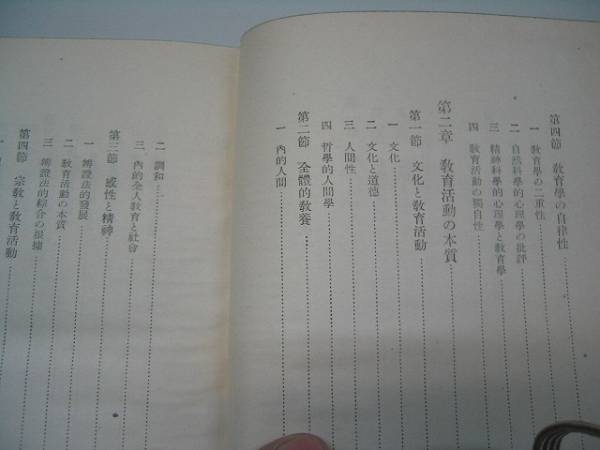 第四節 敎育學の自律性
一 敎育學の二重性
二 自然科學的心理學の批評
三 精神科學的心理學と敎育學
四 敎育活動の獨自性
第二章 敎育活動の本質
第一節 文化と敎育活動
一 文化
二 文化と道德
三 人間性
四 哲學的人間學
第二節 全體的敎養
一 內的人間
二 調和
三 內的全人敎育と社會
第三節 感性と精神
一 辨證法的發展
二 敎育活動の本質
三 辨證法的綜合の根據
第四節 宗敎と敎育活動